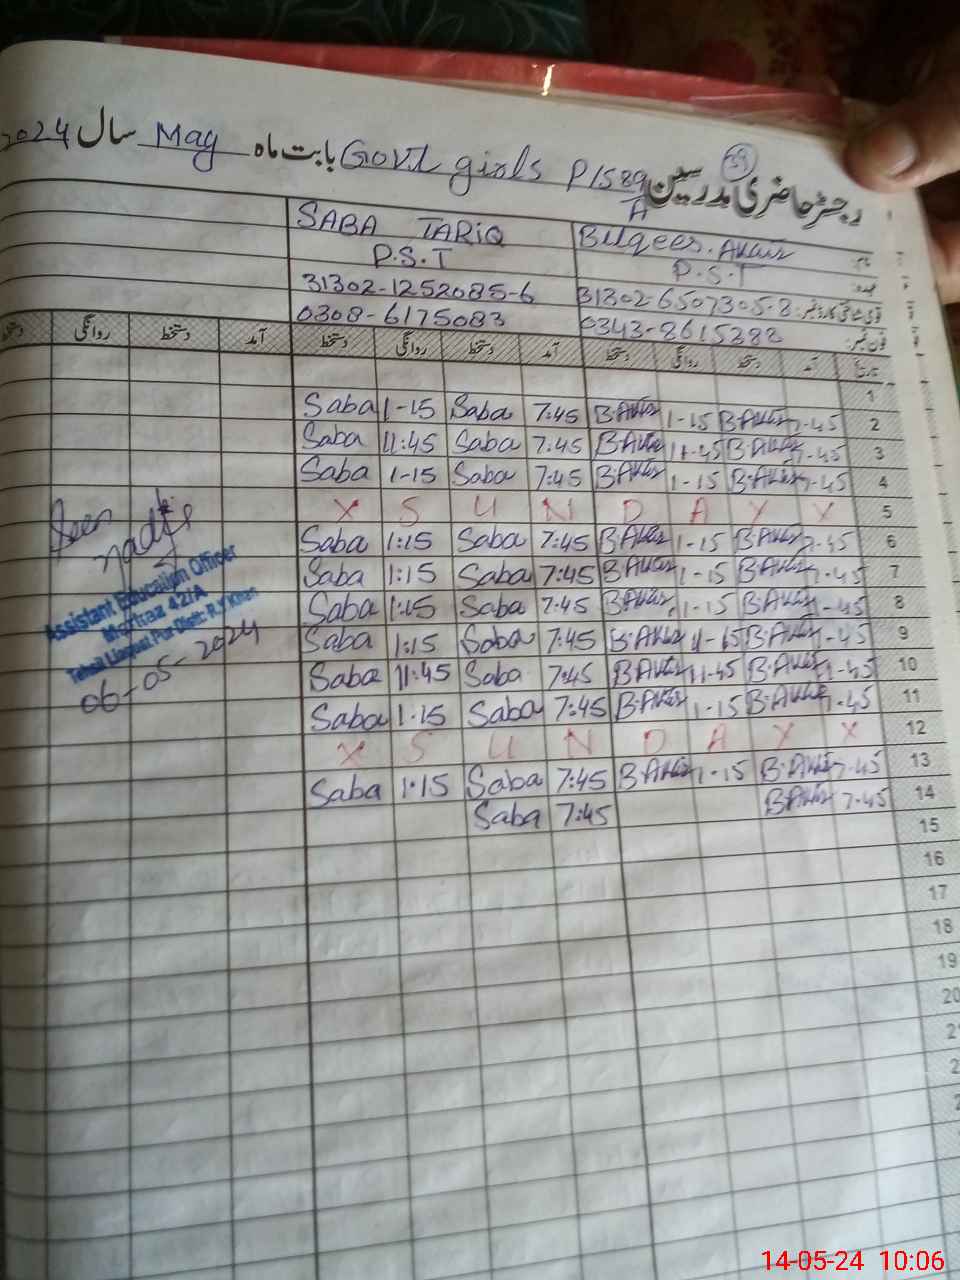 رجسٹر حاضری مدرسین Govt girls P/S 89/A بابت ماہ May سال 2024
39
نام Bilqees. Akhtar SABA TARIQ
عہدہ P.S.T P.S.T
قومی شناختی کارڈ نمبر: 31302-6507305-8 31302-1252085-6
فون نمبر: 0343-8615388 0308-6175083
تاریخ آمد دستخط روانگی دستخط آمد دستخط روانگی دستخط آمد دستخط روانگی دستخط
1
2 7-45 B.Akhtar 1-15 B.Akhtar 7:45 Saba 1-15 Saba
3 7-45 B.Akhtar 11-45 B.Akhtar 7:45 Saba 11:45 Saba
4 7-45 B.Akhtar 1-15 B.Akhtar 7:45 Saba 1-15 Saba
5 X S U N D A Y X
6 7-45 B.Akhtar 1-15 B.Akhtar 7:45 Saba 1:15 Saba
7 7-45 B.Akhtar 1-15 B.Akhtar 7:45 Saba 1:15 Saba
8 7-45 B.Akhtar 1-15 B.Akhtar 7:45 Saba 1:15 Saba
9 7-45 B.Akhtar B.Akhtar 7:45 Saba 1:15 Saba
10 7-45 B.Akhtar 11-45 B.Akhtar 7:45 Saba 11:45 Saba
11 7-45 B.Akhtar 1-15 B.Akhtar 7:45 Saba 1.15 Saba
12 X S U N D A Y X
13 7-45 B.Akhtar 1-15 B.Akhtar 7:45 Saba 1.15 Saba
14 7-45 B.Akhtar 7:45 Saba
15
16
17
18
19
20
Seen
Assistant Education Officer
Markaz 42/A
Tehsil Liaquat Pur Distt: R.Y Khan
06-05-2024
14-05-24 10:06